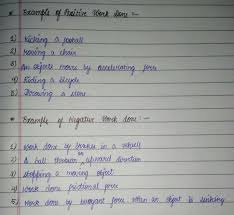 * Example of Positive Work done :-
1) Kicking a football
2) Moving a chair
3) An object moves by accelerating force
4) Riding a bicycle
5) Throwing a stone
* Example of Negative Work done :-
1) Work done by brakes in a vehicle
2) A ball thrown in upward direction
3) Stopping a moving object
4) Work done frictional force
5) Work done by buoyant force when an object is sinking